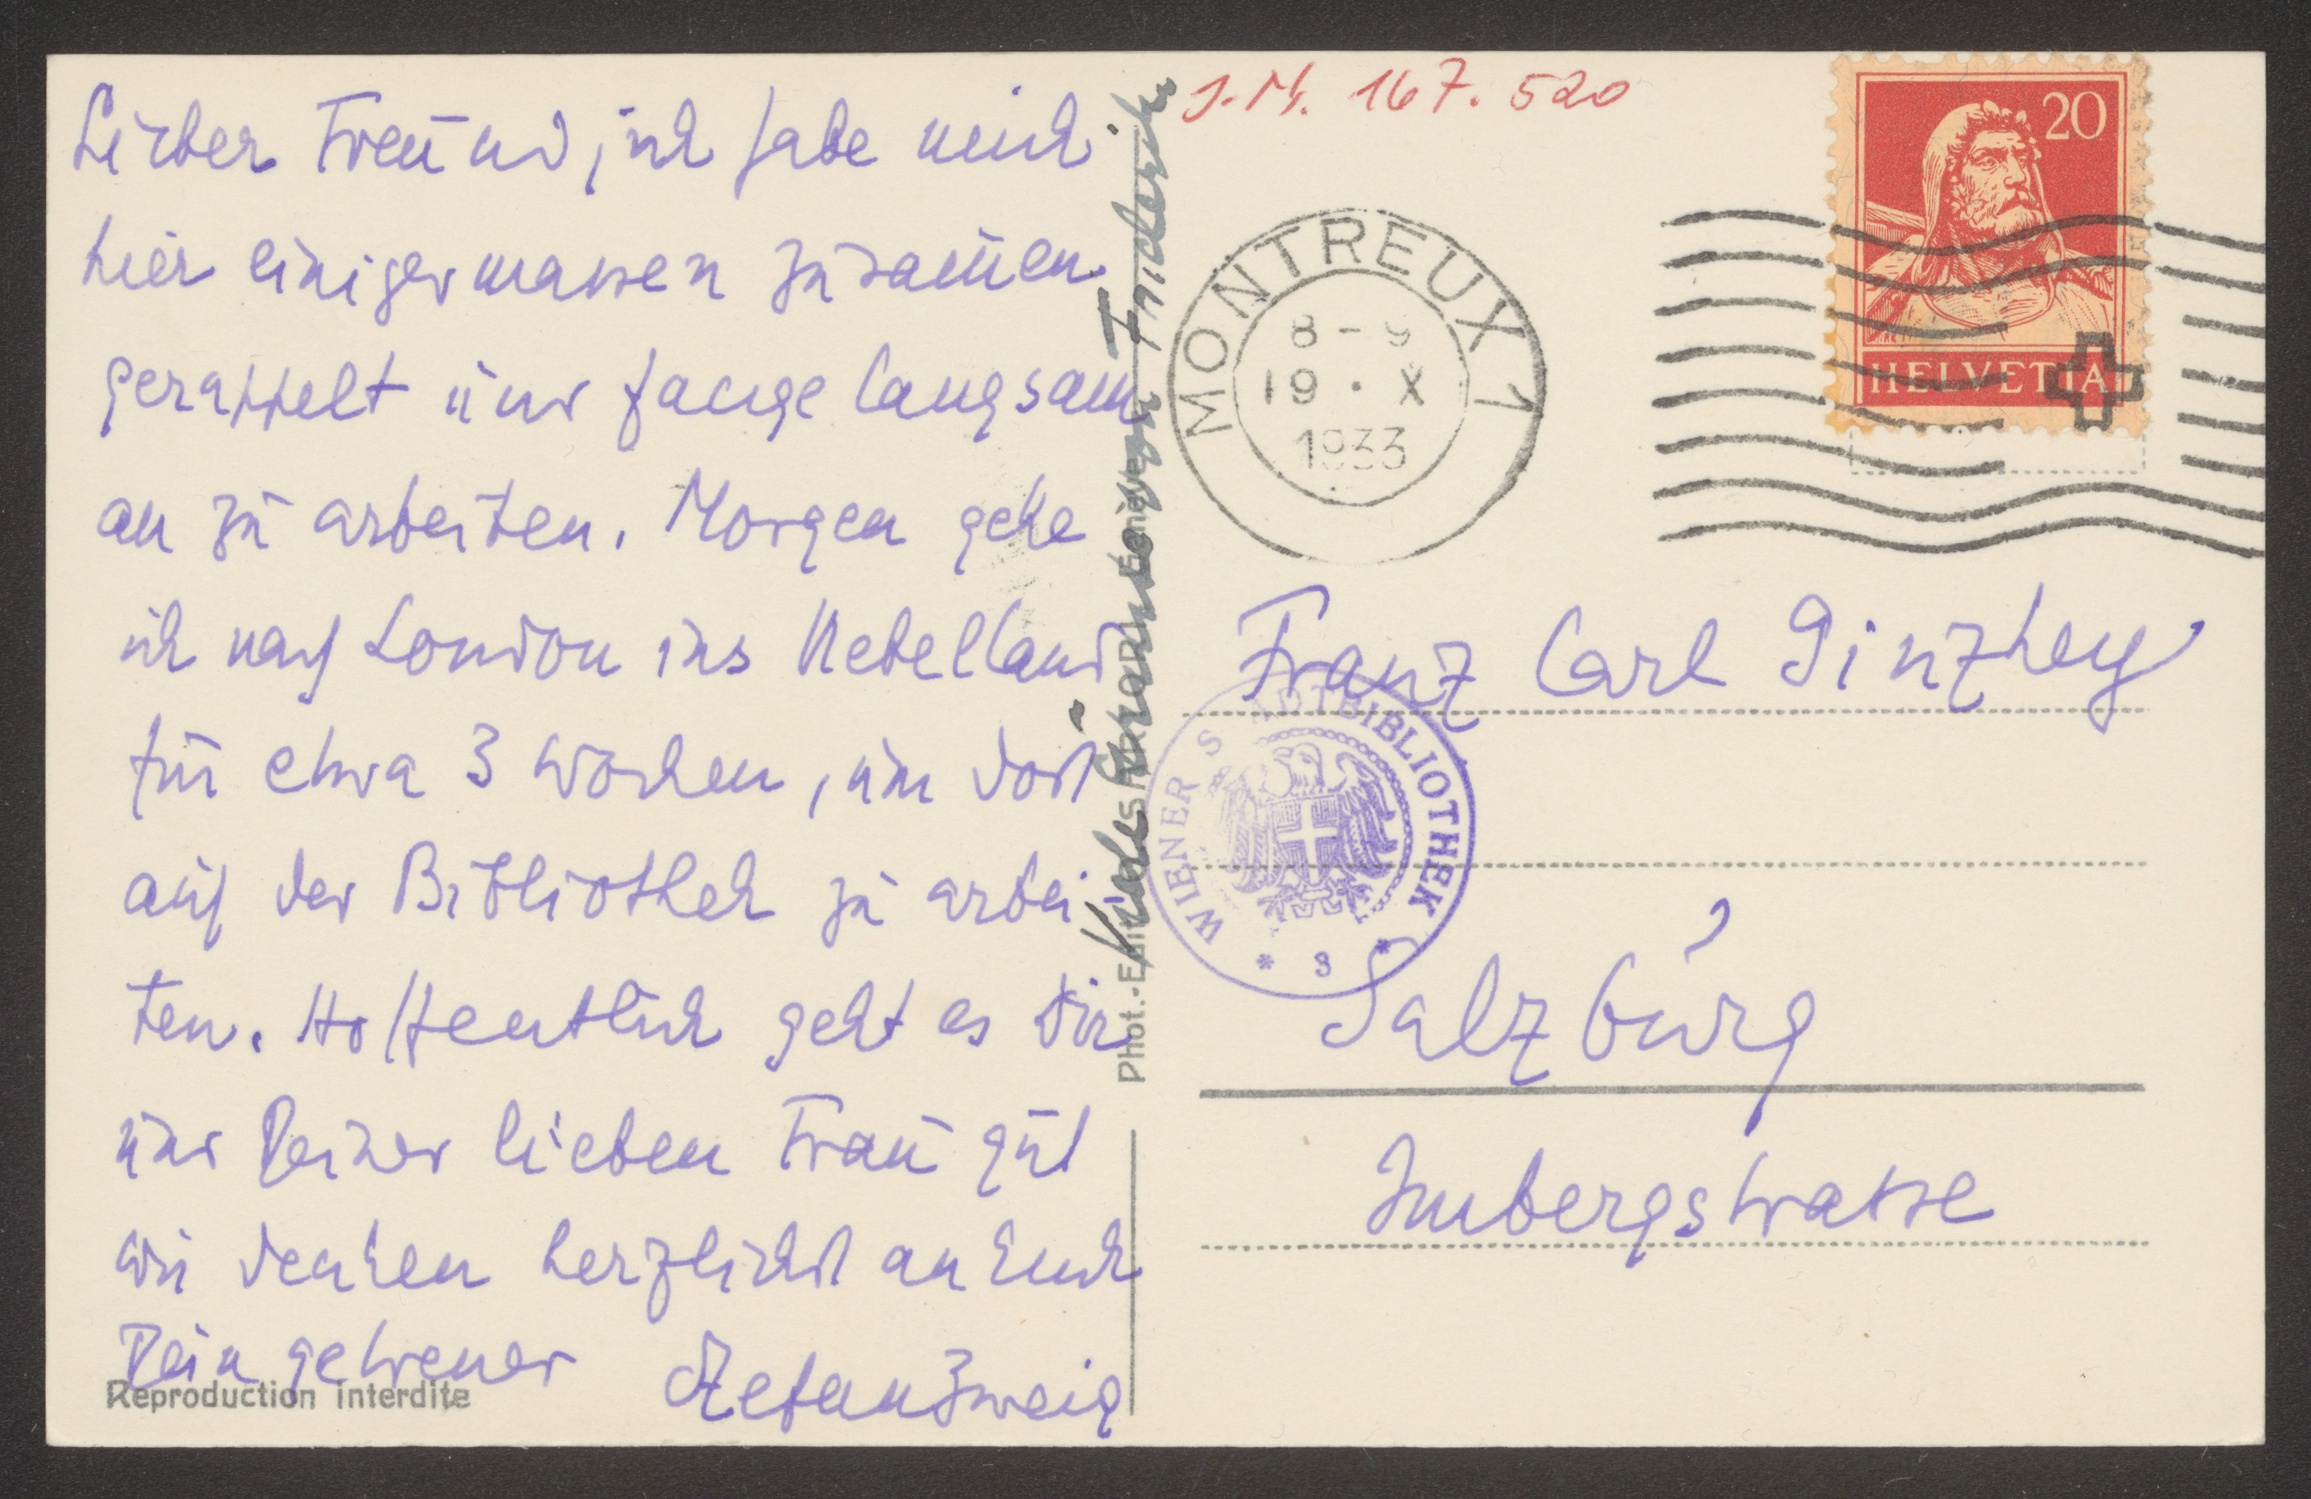 Lieber Freund, ich habe mich
hier einigermassen zusamen
gerappelt und fange langsam
an zu arbeiten. Morgen gehe
ich nach London ins Nebelland
für etwa 3 Wochen, um dort
auf der Bibliothek zu arbei-
ten. Hoffentlich geht es Dir
und Deiner lieben Frau gut
wir denken herzlichst an Euch
Dein getreuer StefanZweig
Reproduction interdite
Phot.-Edit.
von Friderike
J.N. 167.520
20
HELVETIA
MONTREUX 1
8-9
19·X
1933
Franz Carl Ginzkey
WIENER STADTBIBLIOTHEK
* 3 *
Salzburg
Imbergstrasse